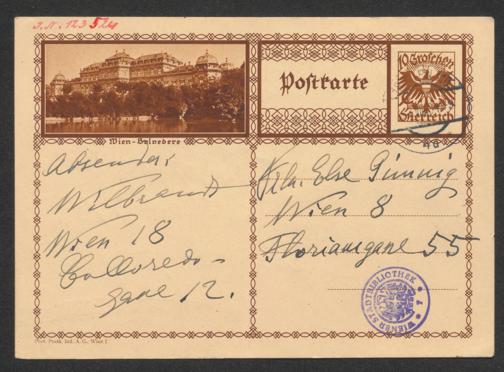 J.N. 123524
Wien-Belvedere
Postkarte
10 Groschen
Österreich
Absender
Wilbrandt
Wien 18
Colloredo-
gasse 12.
Frln. Else
Wien 8
Floriangasse 55
WIENER STADTBIBLIOTHEK